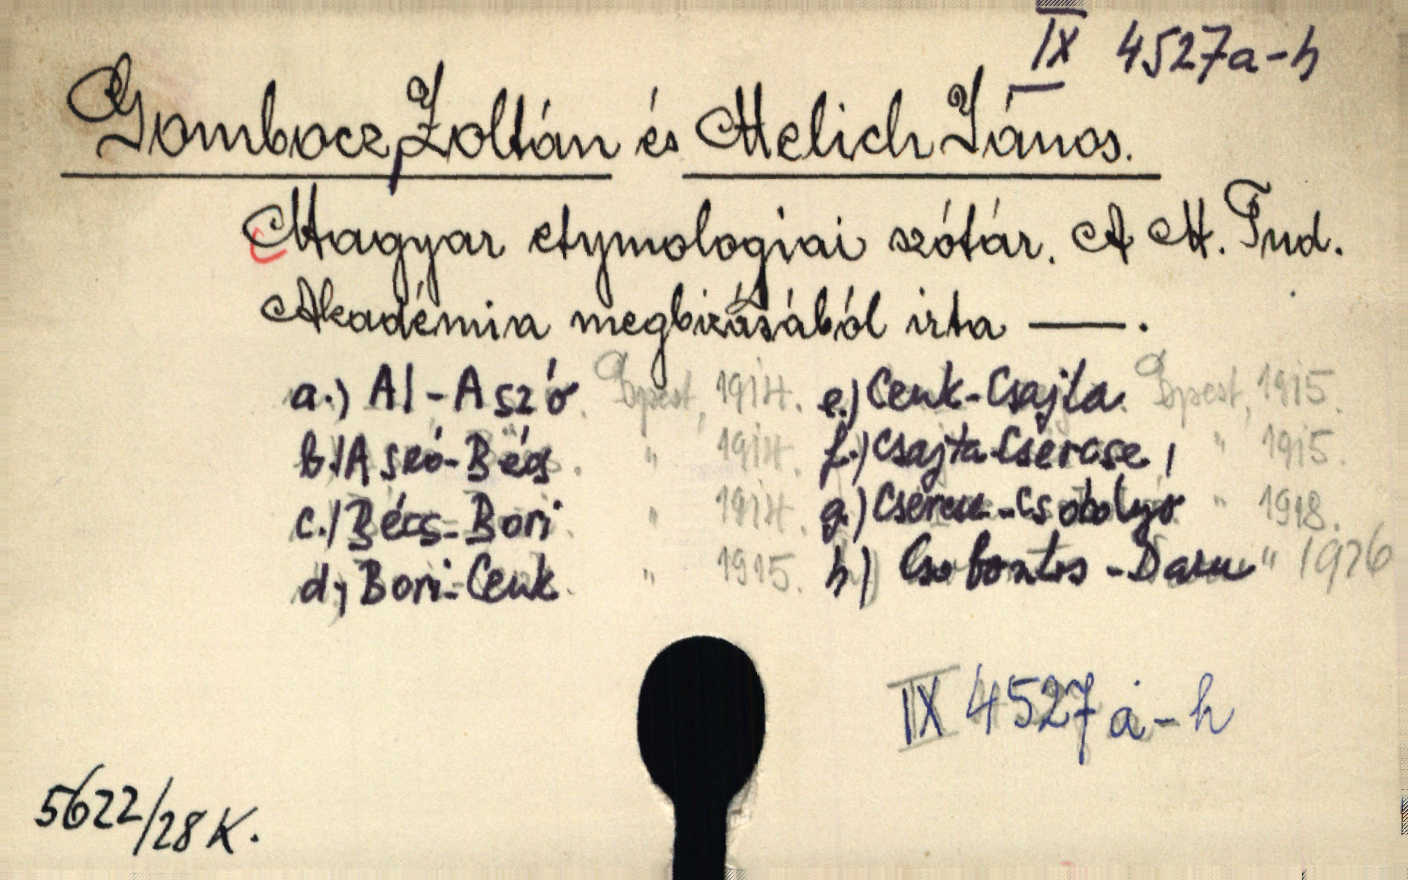 IX 4527a-h
Gombocz Zoltán és Melich János.
Magyar etymologiai szótár. A M. Tud.
Akadémia megbizásából irta —.
a.) Al-Aszó. Bpest, 1914. e.) Cenk-Csajta. Bpest, 1915.
b.) Aszó-Bécs. " 1914. f.) Csajta-Csercse, " 1915.
c.) Bécs-Bori. " 1914. g.) Csercse-Csobolyó " 1918.
d.) Bori-Cenk. " 1915. h.) Csobontos-Daru " 1926
IX 4527 a-h
5622/28 K.